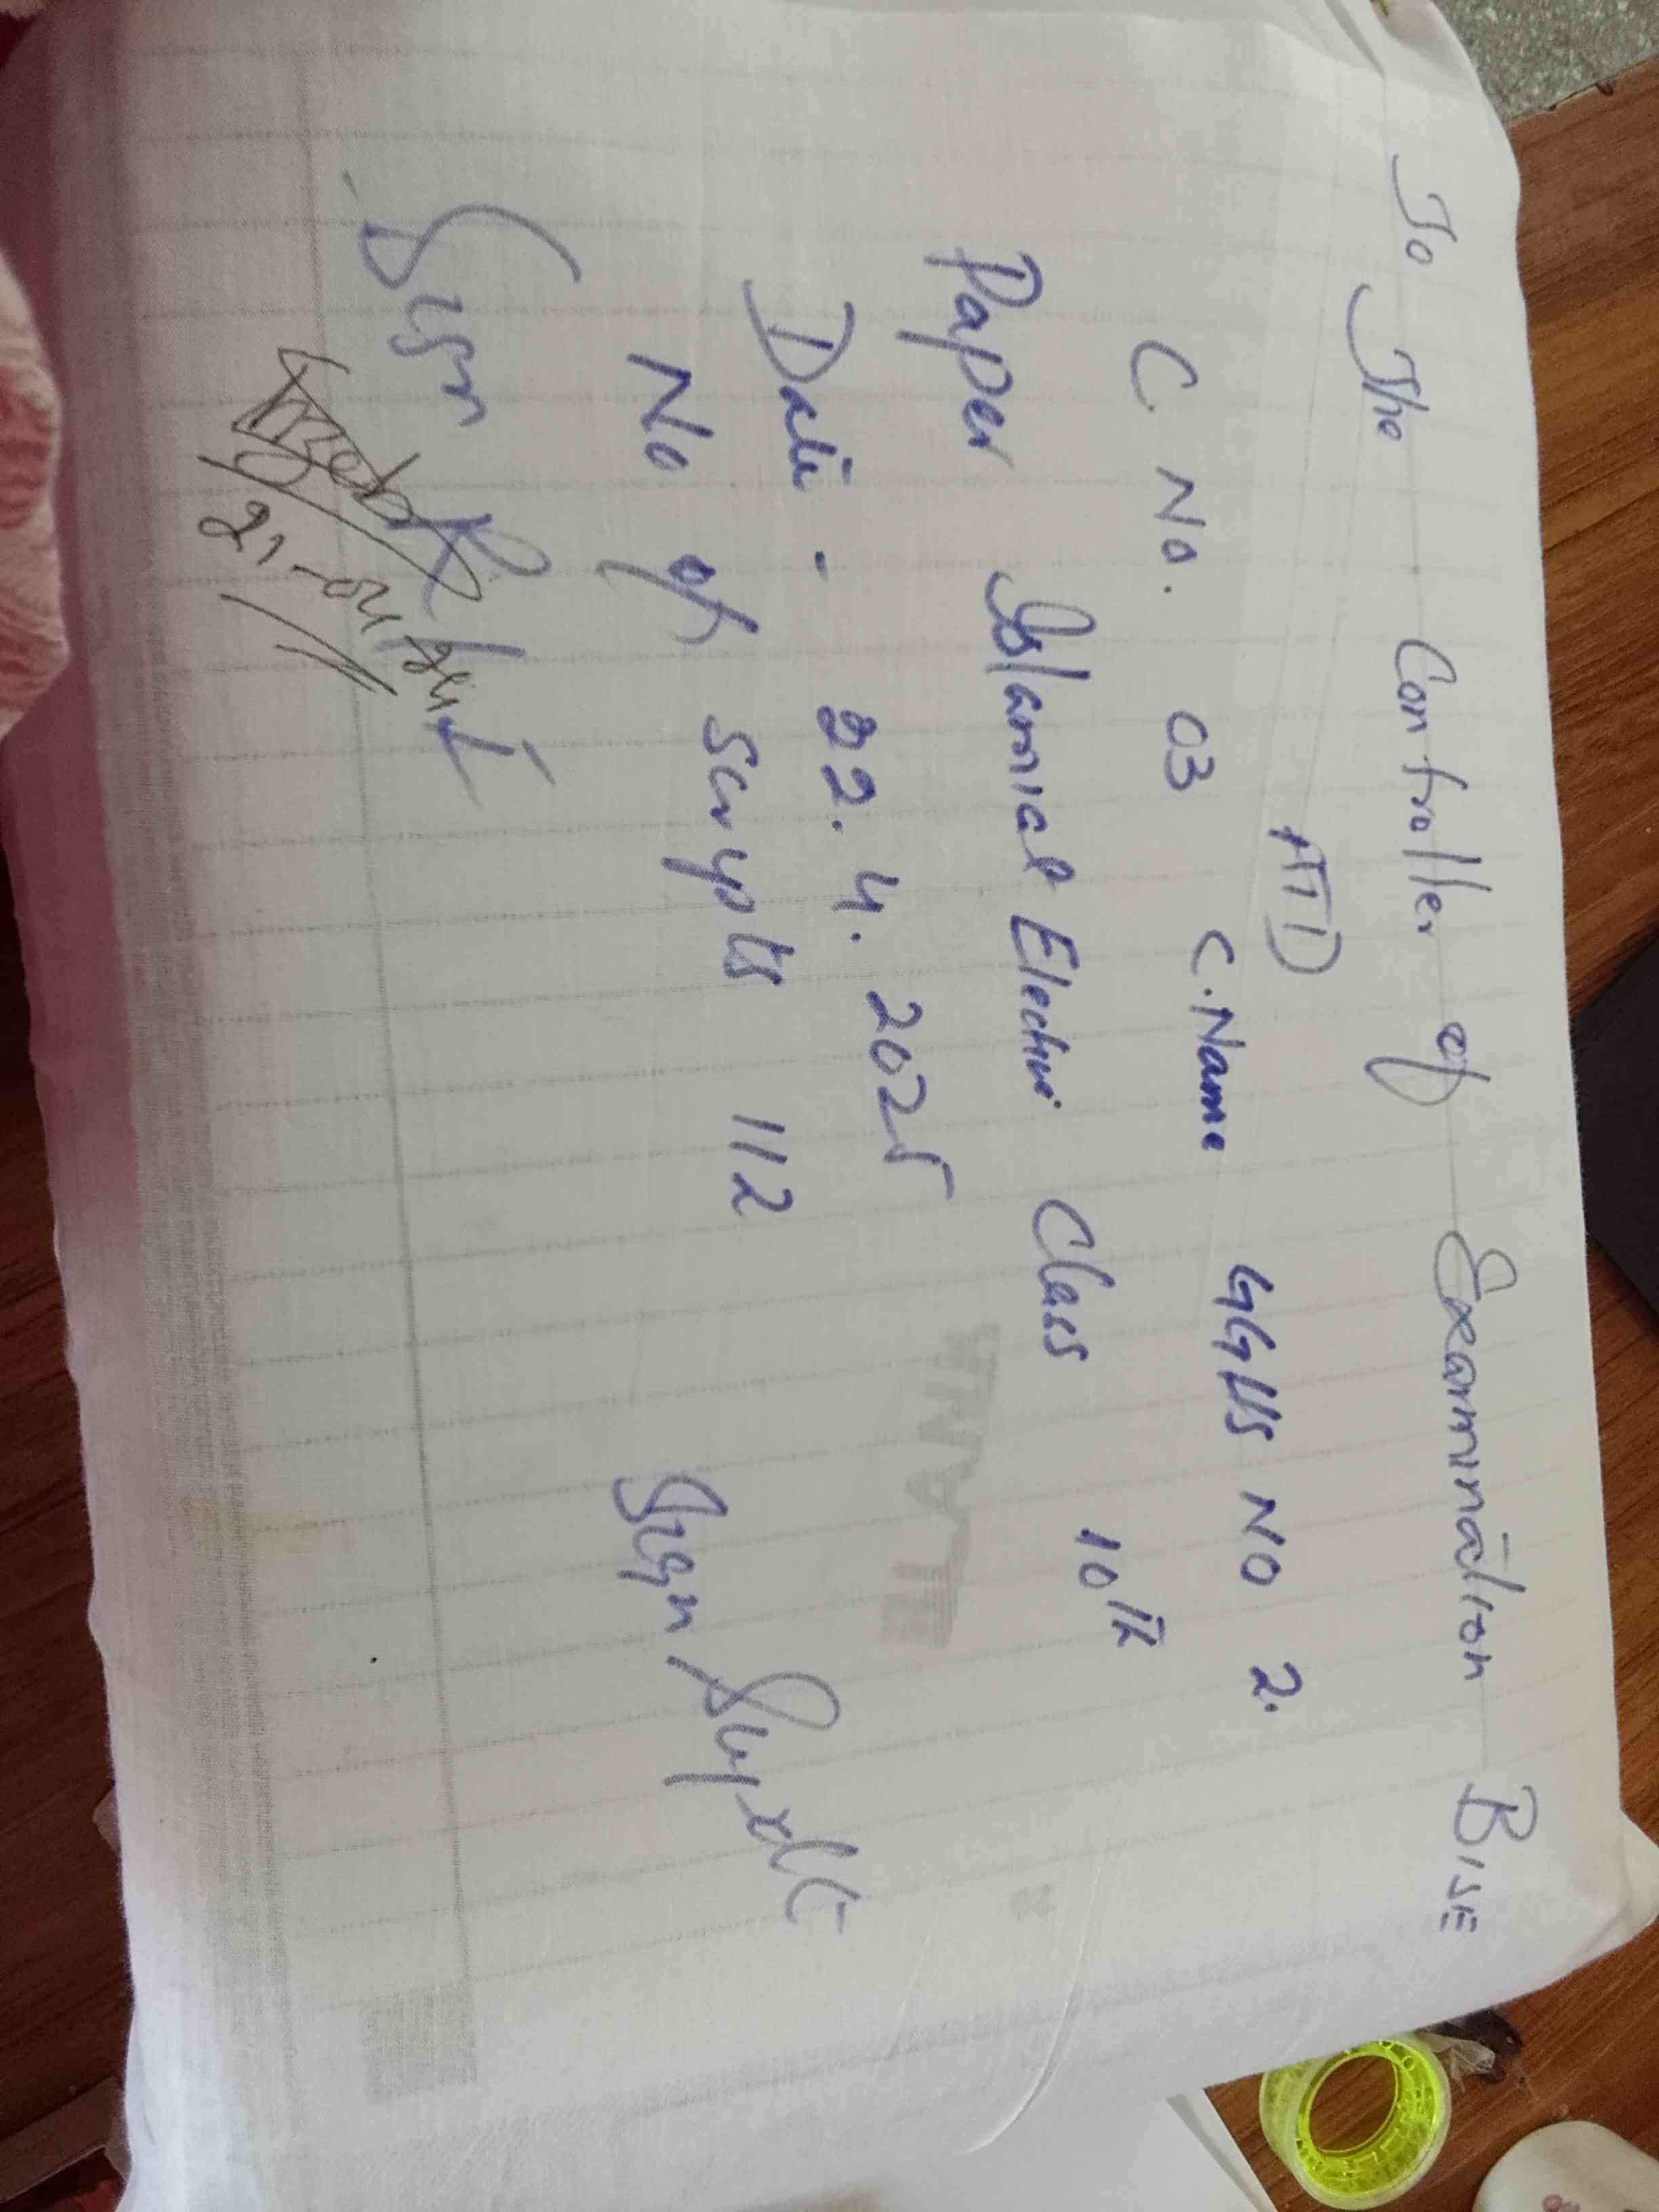 To The Controller of Examination BISE
ATD
C No. 03 C.Name GGHS NO 2.
Paper Islamiat Elective Class 10th
Date - 22.4.2025
No of Scrypts 112
Sign
Sign Supdt